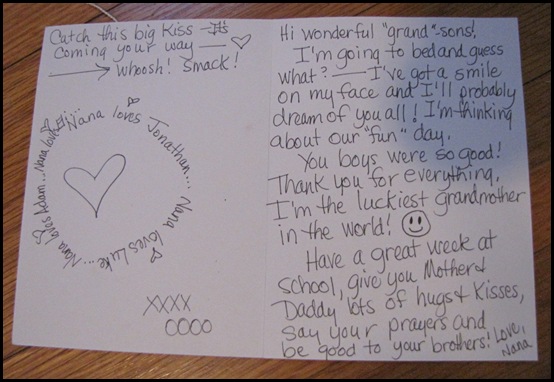 Catch this big Kiss — It's
coming your way — ♡
→ Whoosh! Smack!
Nana loves Jonathan... Nana loves Luke... Nana loves Adam... Nana loves
XXXX
OOOO
Hi wonderful "grand"-sons!,
I'm going to bed and guess
what? — I've got a smile
on my face and I'll probably
dream of you all! I'm thinking
about our "fun" day.
You boys were so good!
Thank you for everything,
I'm the luckiest grandmother
in the world! ☺
Have a great week at
school, give you Mother &
Daddy lots of hugs & Kisses,
say your prayers and
be good to your brothers! Love,
Nana